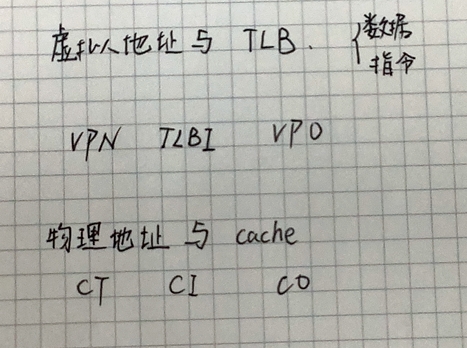 虚拟地址与 TLB. {数据
指令
VPN TLBI VPO
物理地址与 cache
CT CI CO